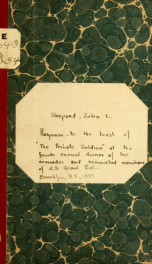 E
649
.S54
Shepard, John L.
Response to the toast of
"The Private Soldier" at the
fourth annual dinner of the
comrades and associated members
of U.S. Grant Post--
Brooklyn, N.Y., 1889